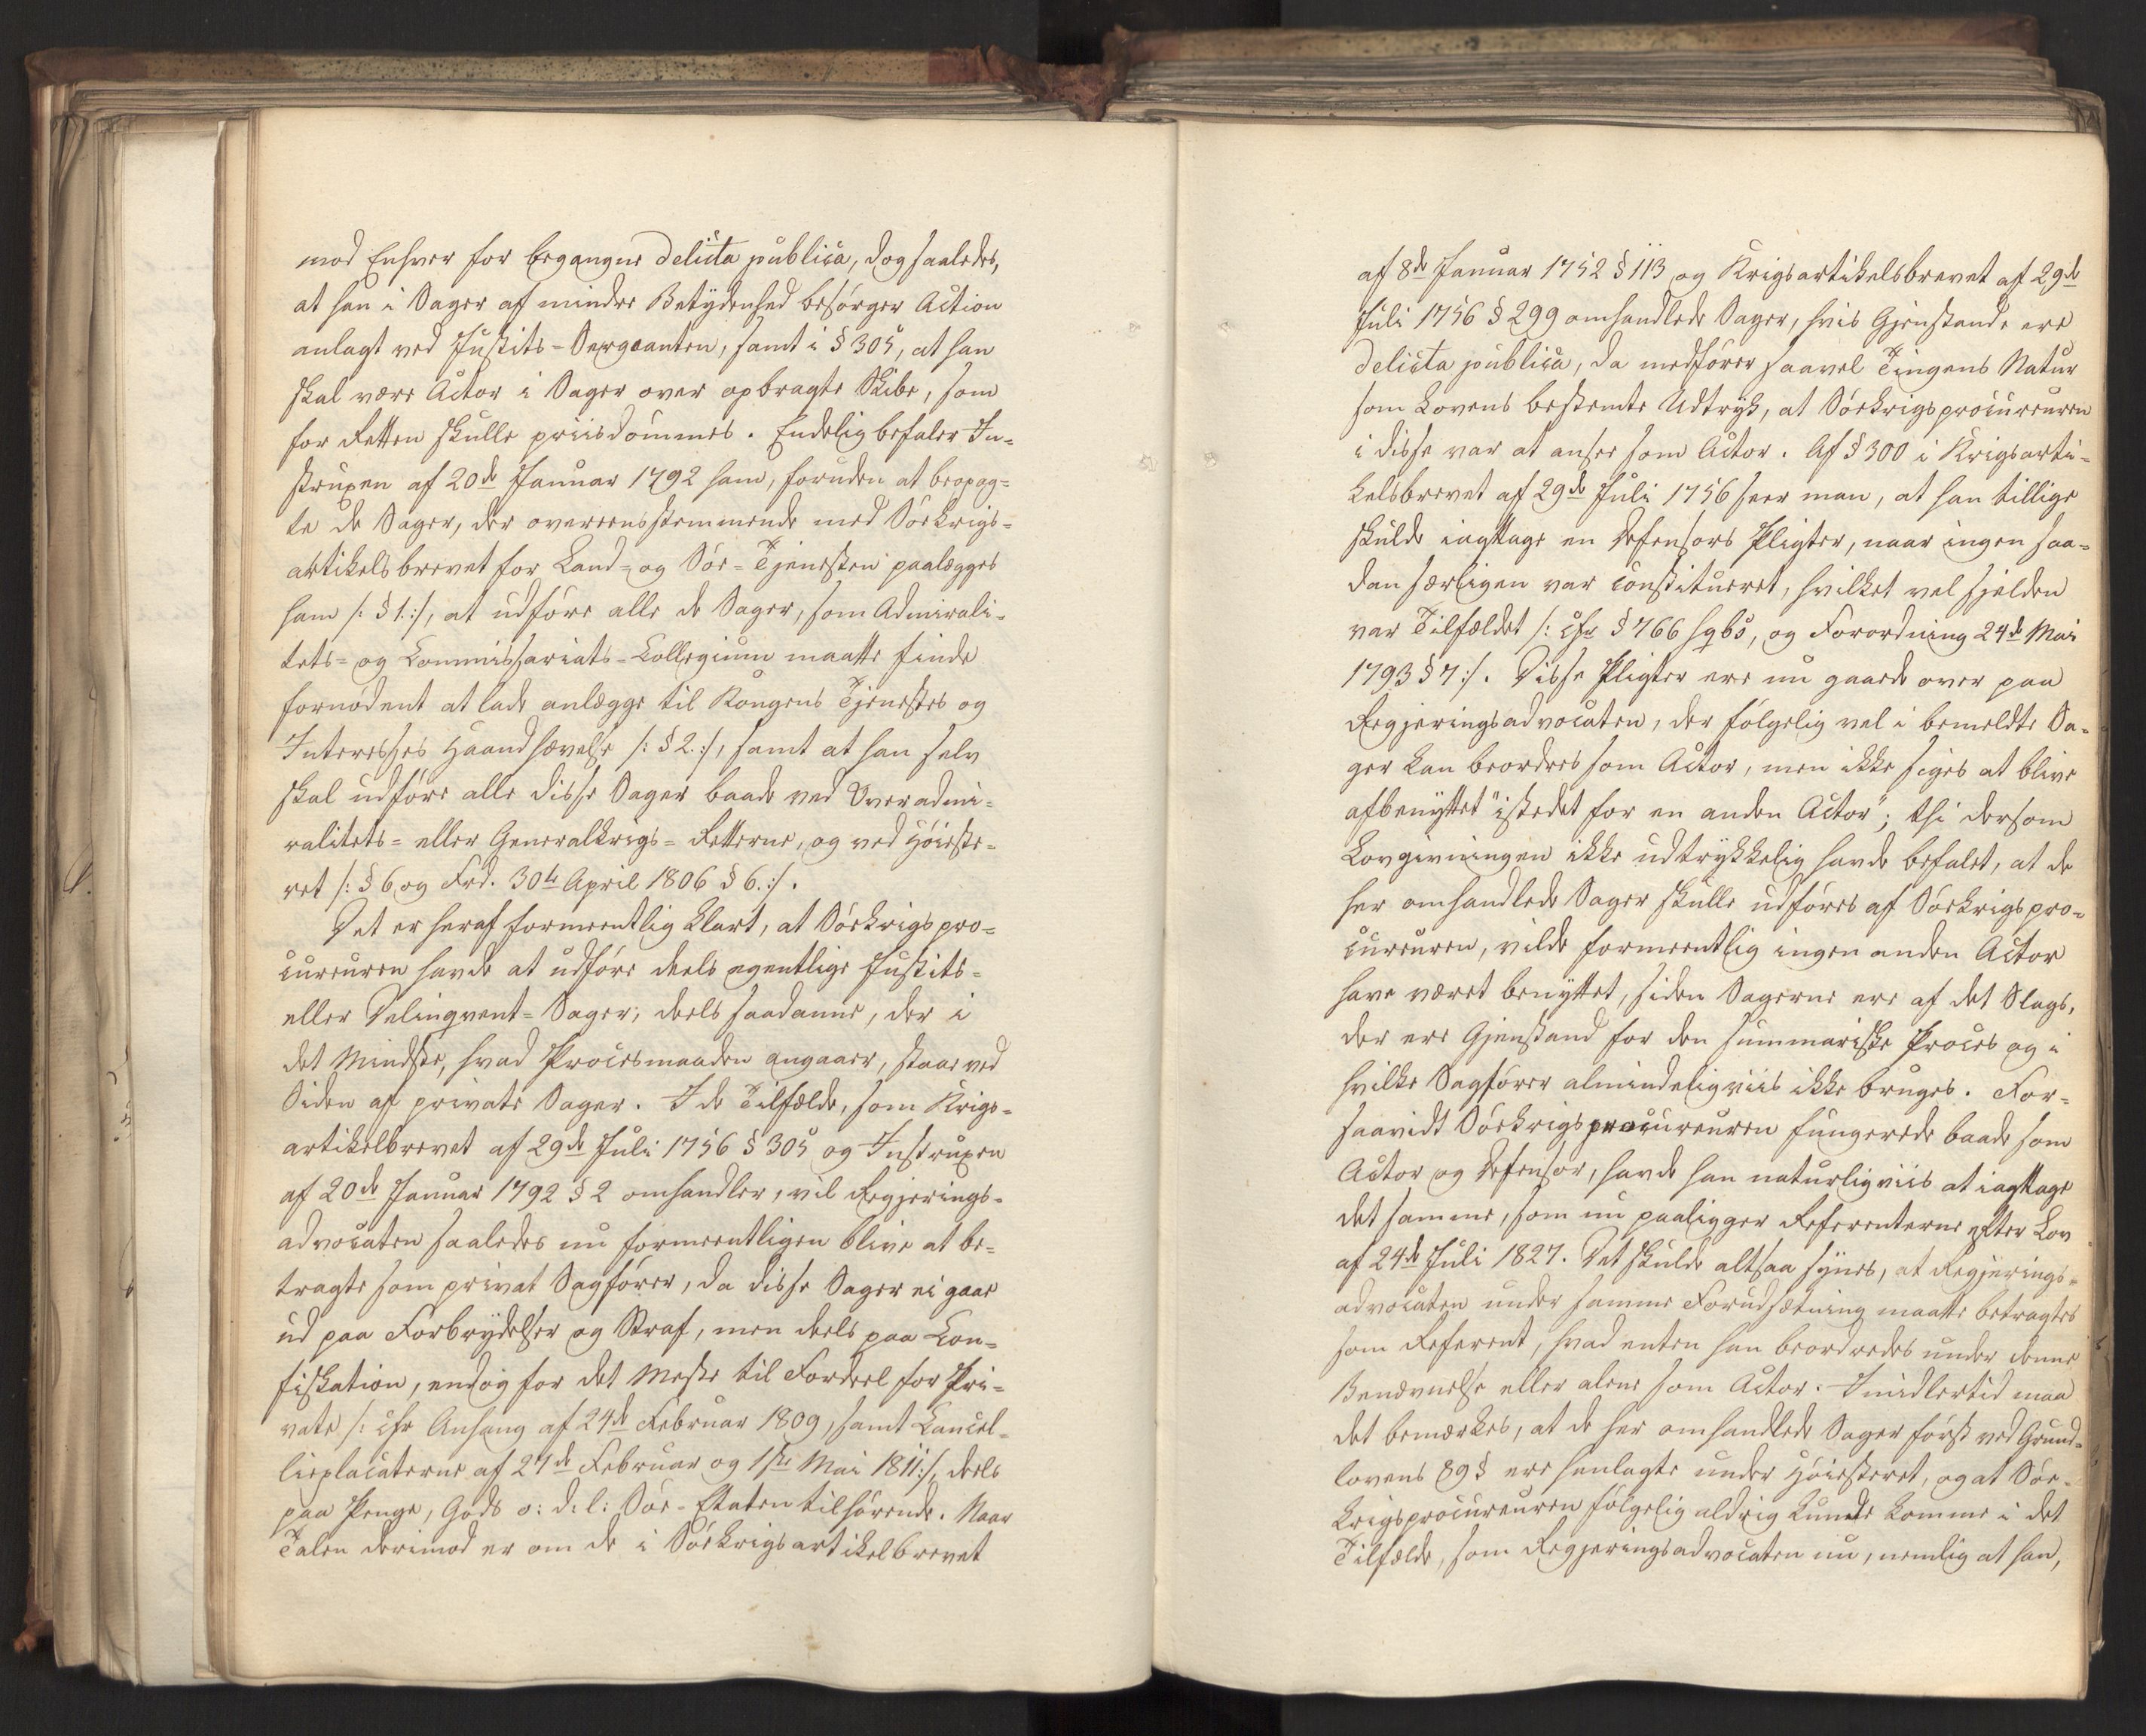 mod Enhver for begangne delicta publica, dog saaledes,
at han i Sager af mindre Betydenhed besørger Action
anlagt ved Justits-Sergeanten, samt i § 305, at han
skal være Actor i Sager over opbragte Skibe, som
for Retten skulle priisdømmes. Endelig befaler In-
struxen af 20de Januar 1792 ham, foruden at
te de Sager, der overeensstemmende med Søekrigs-
artikelsbrevet for Land- og Søe-Tjenesten paalægges
ham /: § 1. :/, at udføre alle de Sager, som Admirali-
tets- og Commissariats-Collegium maatte finde
fornødent at lade anlægge til Kongens Tjenestes og
Interesses Haandhævelse /: § 2. :/, samt at han selv
skal udføre alle disse Sager baade ved Overadmi-
ralitets- eller Generalkrigs-Retterne, og ved Høieste-
ret /: § 6 og Frd. 30te April 1806 § 6. :/.
Det er heraf formeentlig klart, at Søekrigspro-
cureuren havde at udføre deels egentlige Justits-
eller Delinqvent-Sager, deels saadanne, der i
det Mindste, hvad Procesmaaden angaaer, staae ved
Siden af private Sager. I de Tilfælde, som Krigs-
artikelbrevet af 29de Juli 1756 § 305 og Instruxen
af 20de Januar 1792 § 2 omhandler, vil Regjerings-
advocaten saaledes nu formeentligen blive at be-
tragte som privat Sagfører, da disse Sager ei gaae
ud paa Forbrydelser og Straf, men deels paa Con-
fiskation, endog for det Meste til Fordeel for Pri-
vate /: cfr Anhang af 24de Februar 1809, samt Cancel-
lieplacaterne af 27de Februar og 1ste Mai 1811 :/, deels
paa Penge, Gods o: d: l: Søe-Etaten tilhørende. Naar
Talen derimod er om de i Søekrigsartikelbrevet
af 8de Januar 1752 § 113 og Krigsartikelsbrevet af 29de
Juli 1756 § 299 omhandlede Sager, hvis Gjenstande ere
delicta publica, da medfører saavel Tingens Natur
som Lovens bestemte Udtryk, at Søekrigsprocureuren
i disse var at ansee som Actor. Af § 300 i Krigsarti-
kelsbrevet af 29de Juli 1756 seer man, at han tillige
skulde iagttage en Defensors Pligter, naar ingen saa-
dan særligen var constitueret, hvilket vel sjelden
var Tilfældet /: cfr § 766 og Forordning 24de Mai
1793 § 7 :/. Disse Pligter ere nu gaaede over paa
Regjeringsadvocaten, der følgelig vel i bemeldte Sa-
ger kan beordres som Actor, men ikke siges at blive
afbenyttet "istedet for en anden Actor"; thi dersom
Lovgivningen ikke udtrykkelig havde befalet, at de
her omhandlede Sager skulle udføres af Søekrigspro-
cureuren, vilde formeentlig ingen anden Actor
have været benyttet, siden Sagerne ere af det Slags,
der ere Gjenstand for den summariske Proces og i
hvilke Sagfører almindeligviis ikke bruges. For-
saavidt Søekrigsprocureuren fungerede baade som
Actor og Defensor, havde han naturligviis at iagttage
det samme, som nu paaligger Referenterne efter Lov
af 24de Juli 1827. Det skulde altsaa synes, at Regjerings-
advocaten under samme Forudsætning maatte betragtes
som Referent, hvad enten han beordredes under denne
Benævnelse eller alene som Actor. Imidlertid maa
det bemærkes, at de her omhandlede Sager først ved Grund-
lovens 89 § ere henlagte under Høiesteret, og at Søe-
krigsprocureuren følgelig aldrig kunde komme i det
Tilfælde, som Regjeringsadvocaten nu, nemlig at han,